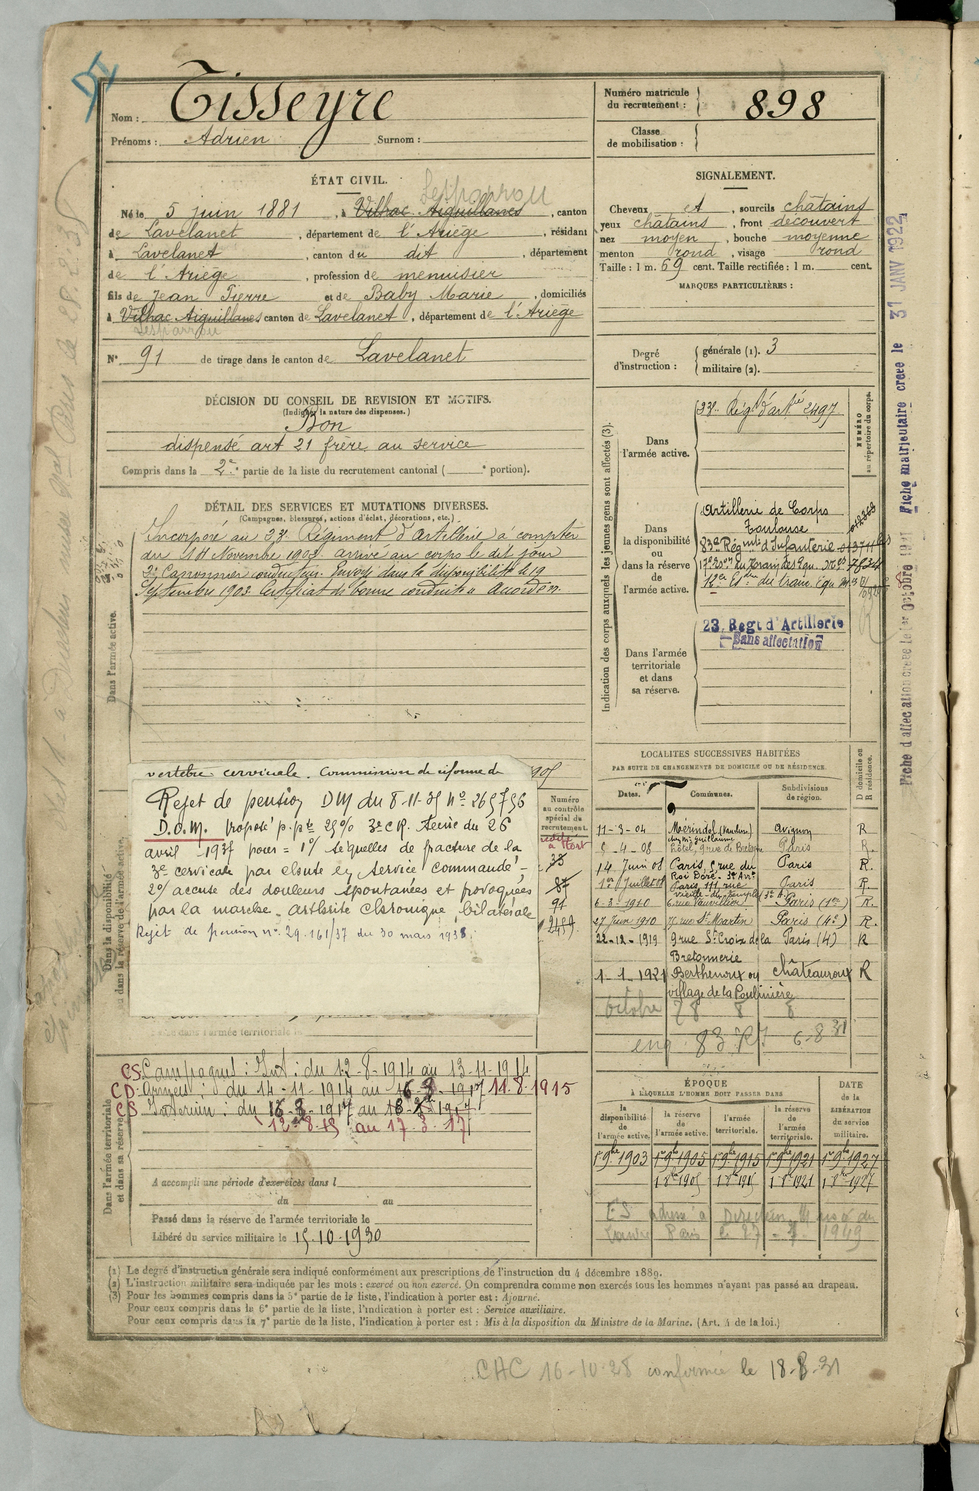 Nom : Tisseyre
Prénoms : Adrien Surnom :
Numéro matricule du recrutement : 898
Classe de mobilisation :
ÉTAT CIVIL.
Lesparrou
Né le 5 juin 1881, à Vilhac-Aiguillanes, canton
de Lavelanet, département de l'Ariège, résidant
à Lavelanet, canton du dit, département
de l'Ariège, profession de menuisier
fils de Jean Pierre et de Baby Marie, domiciliés
à Vilhac Aiguillanes canton de Lavelanet, département de l'Ariège
Lesparrou
N° 91 de tirage dans le canton de Lavelanet
SIGNALEMENT.
Cheveux et, sourcils châtains
yeux châtains, front découvert
nez moyen, bouche moyenne
menton rond, visage rond
Taille : 1 m. 69 cent. Taille rectifiée : 1 m. cent.
MARQUES PARTICULIÈRES :
Degré d'instruction : générale (1). 3
militaire (2).
DÉCISION DU CONSEIL DE REVISION ET MOTIFS.
(Indiquer la nature des dispenses.)
Bon
dispensé art 21 frère au service
Compris dans la 2e partie de la liste du recrutement cantonal ( e portion).
DÉTAIL DES SERVICES ET MUTATIONS DIVERSES.
(Campagnes, blessures, actions d'éclat, décorations, etc.)
Incorporé au 23e Régiment d'artillerie à compter
du 14 Novembre 1902 arrivé au corps le dit jour
2e Canonnier conducteur. Envoyé dans la disponibilité le 19
Septembre 1903. Certificat de bonne conduite accordé.
Dans l'armée active.
Indication des corps auxquels les jeunes gens sont affectés (3).
NUMÉRO au répertoire du corps.
Dans l'armée active.
23e Régt d'artie 2497
Dans la disponibilité ou dans la réserve de l'armée active.
Artillerie de Corps
Toulouse
83e Régiment d'Infanterie
Dans l'armée territoriale et dans sa réserve.
23. Regt d'Artillerie
Sans affectation
Fiche d'affectation créée le 1er Octobre 1921 Fiche matriculaire créée le 31 JANV 1922
vertèbre cervicale. Commission de réforme de
Rejet de pension DM du 8-11-35 N° 265756
D.O.M. Proposé p.pte 25% 3e CR. Seine du 26
avril 1937 pour = 1°/ séquelles de fracture de la
3e cervicale par chute en service commandé -
2°/ accuse des douleurs spontanées et provoquées
par la marche. arthrite chronique bilatérale
Rejet de pension n° 29.161/37 du 30 mars 1938.
Dans la disponibilité ou dans la réserve de l'armée active.
Numéro au contrôle spécial du recrutement.
33
87
91
2459
LOCALITÉS SUCCESSIVES HABITÉES
PAR SUITE DE CHANGEMENTS DE DOMICILE OU DE RÉSIDENCE.
Dates. Communes. Subdivisions de région. D domicile ou R résidence.
11-3-04 Mérindol (Vaucluse) Avignon R
5-4-08 Paris R.
14 Juin 08 Paris, 5 rue du Roi Doré Paris R.
1er Juillet 08 Paris, 111 rue vieille du temple Paris R.
6-3-1910 6 rue Vauvilliers Paris (1er) R.
27 Juin 1910 rue St Martin Paris (4e) R.
22-12-1919 9 rue Ste Croix de la Bretonnerie Paris (4) R
1-1-1921 Berthenoux ou village de la Poulinière châteauroux R
ÉPOQUE
À LAQUELLE L'HOMME DOIT PASSER DANS
la disponibilité de l'armée active. la réserve de l'armée active. l'armée territoriale. la réserve de l'armée territoriale. DATE de la LIBÉRATION du service militaire.
1er 9bre 1903 1er 9bre 1905 1er 9bre 1915 1er 9bre 1921 1er 9bre 1927
CS Campagnes : Int : du 12-8-1914 au 13-11-1914
CD Armées : du 14-11-1914 au 16-3-1917 11-8-1915
CS Intérieur : du 16-3-1917 au
12-8-15 au 17-3-17
Dans l'armée territoriale et dans sa réserve.
A accompli une période d'exercices dans l
du au
Passé dans la réserve de l'armée territoriale le
Libéré du service militaire le 15-10-1930
(1) Le degré d'instruction générale sera indiqué conformément aux prescriptions de l'instruction du 4 décembre 1889.
(2) L'instruction militaire sera indiquée par les mots : exercé ou non exercé. On comprendra comme non exercés tous les hommes n'ayant pas passé au drapeau.
(3) Pour les hommes compris dans la 5e partie de la liste, l'indication à porter est : Ajourné.
Pour ceux compris dans la 6e partie de la liste, l'indication à porter est : Service auxiliaire.
Pour ceux compris dans la 7e partie de la liste, l'indication à porter est : Mis à la disposition du Ministre de la Marine. (Art. 4 de la loi.)
CAC 16-10-28 confirmée le 18-8-31